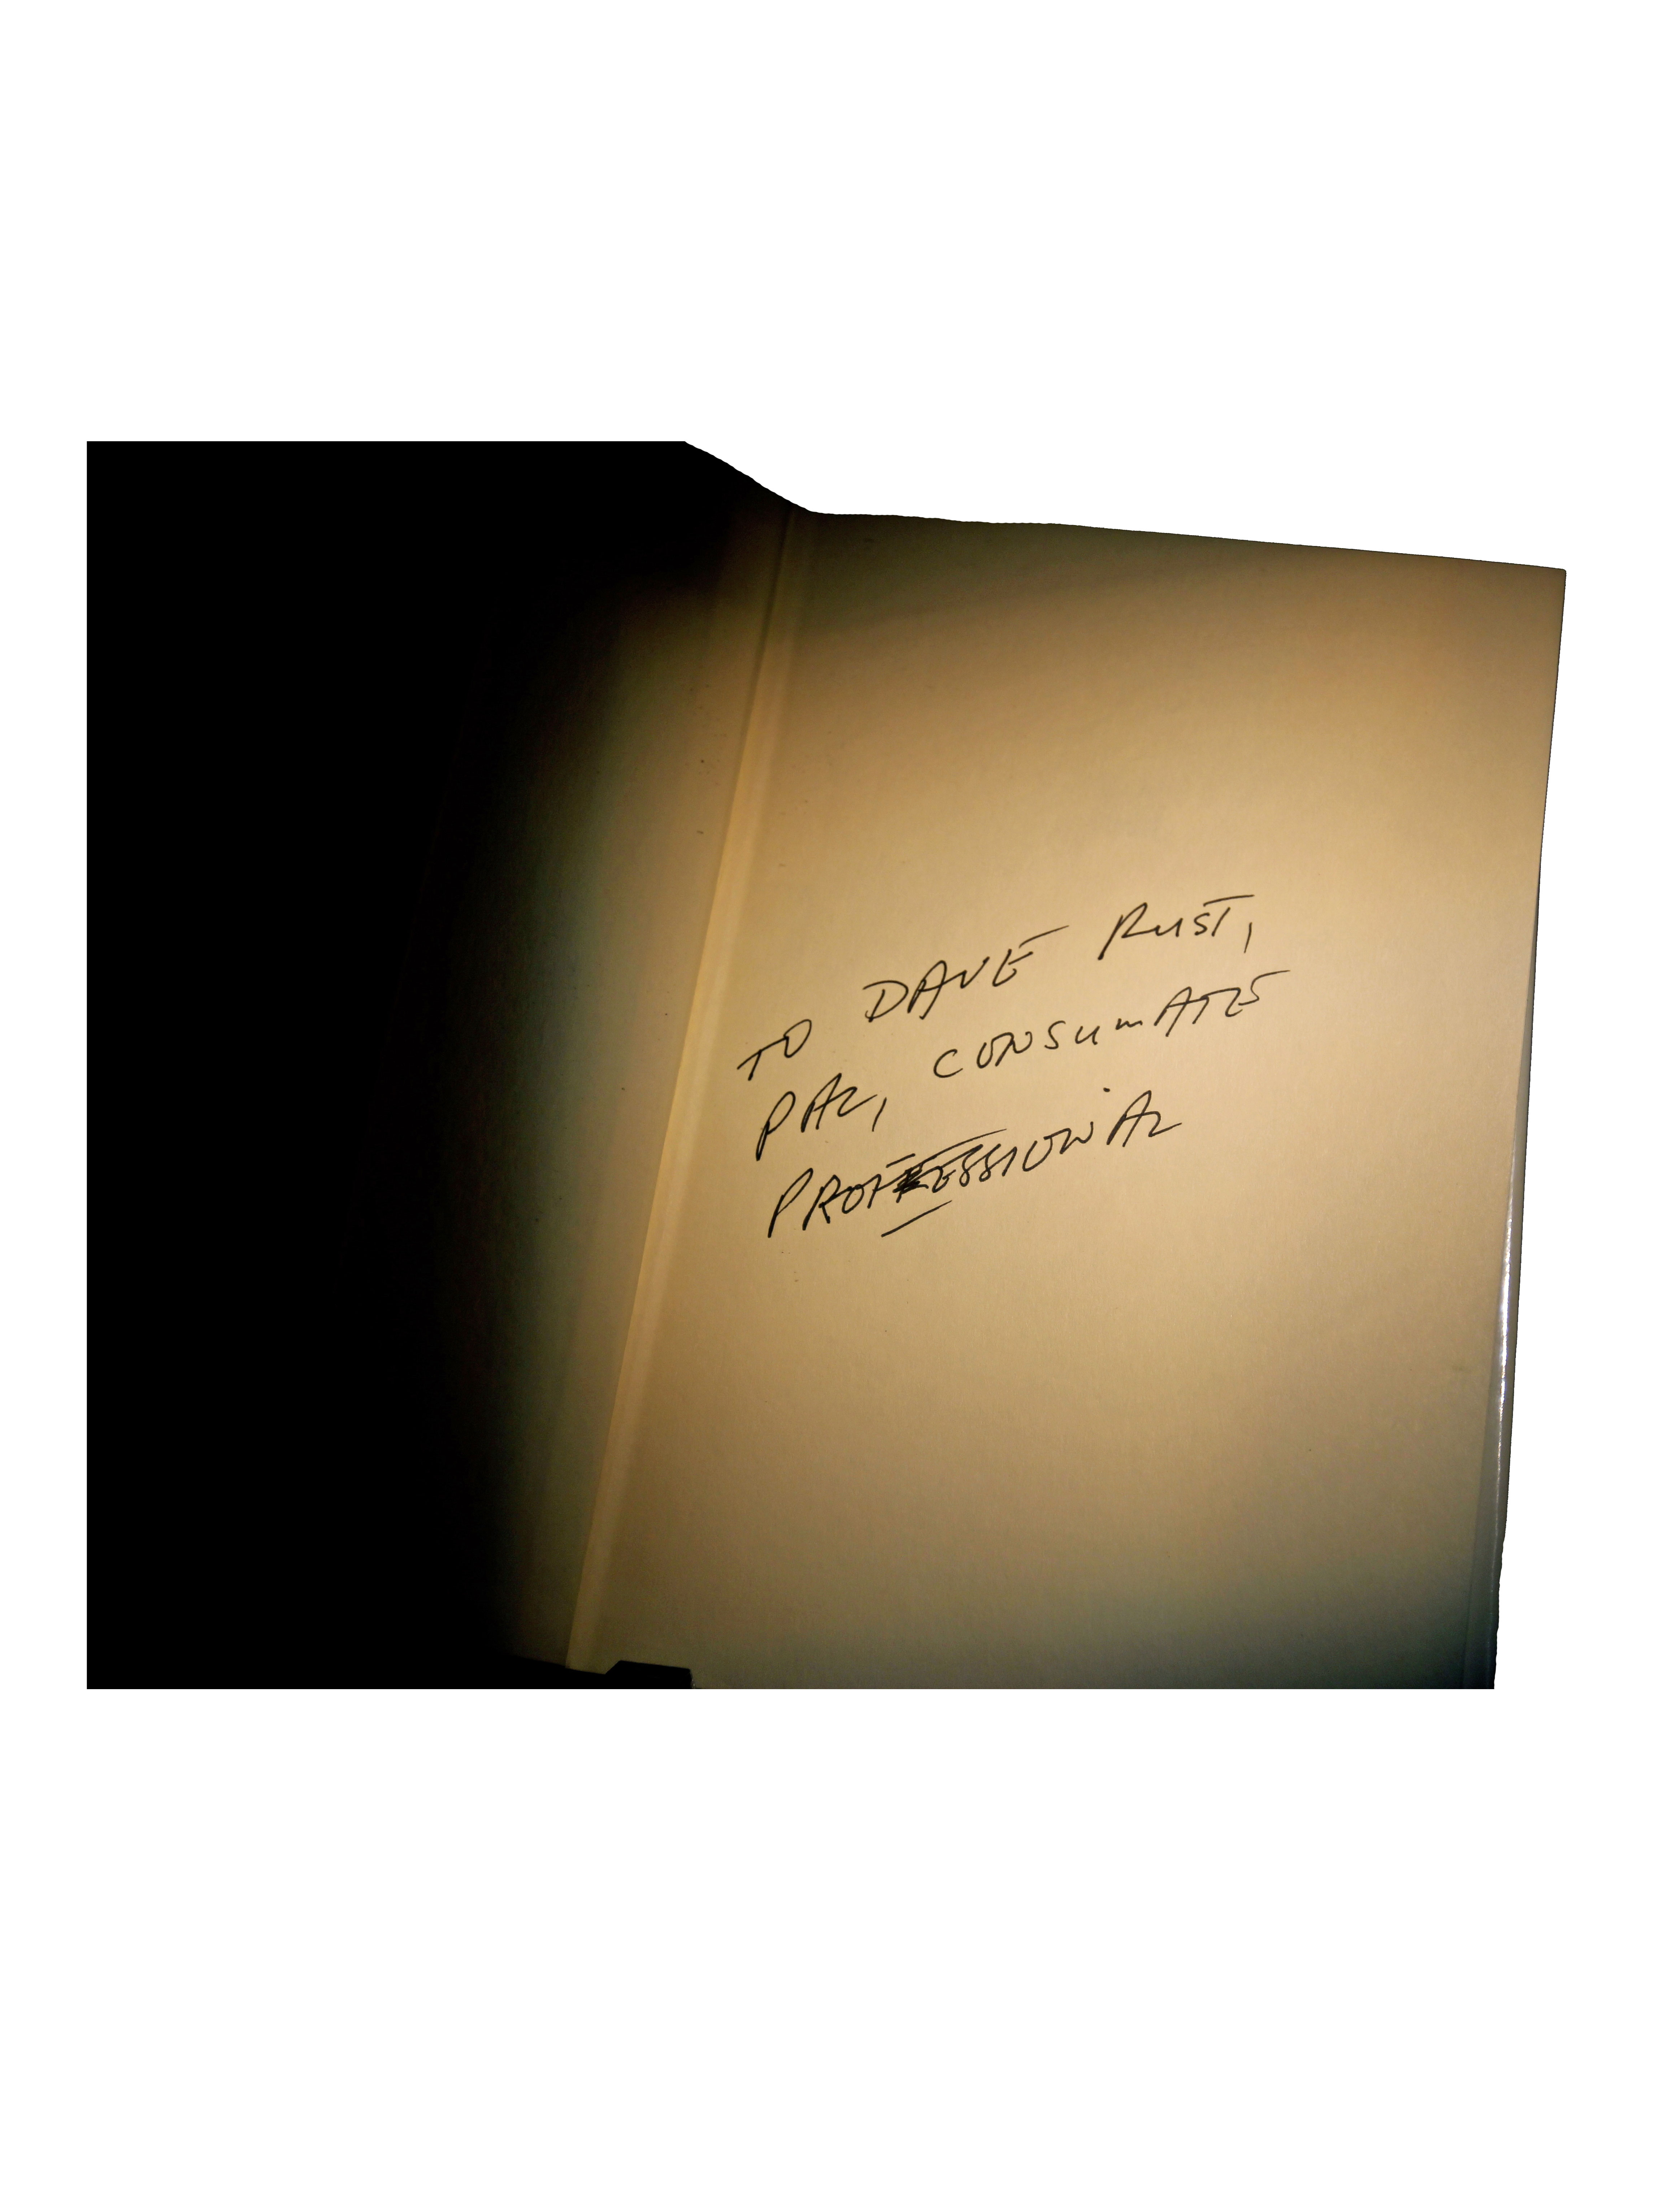 TO DAVE RUST,
PAL, CONSUMATE
PROFESSIONAL